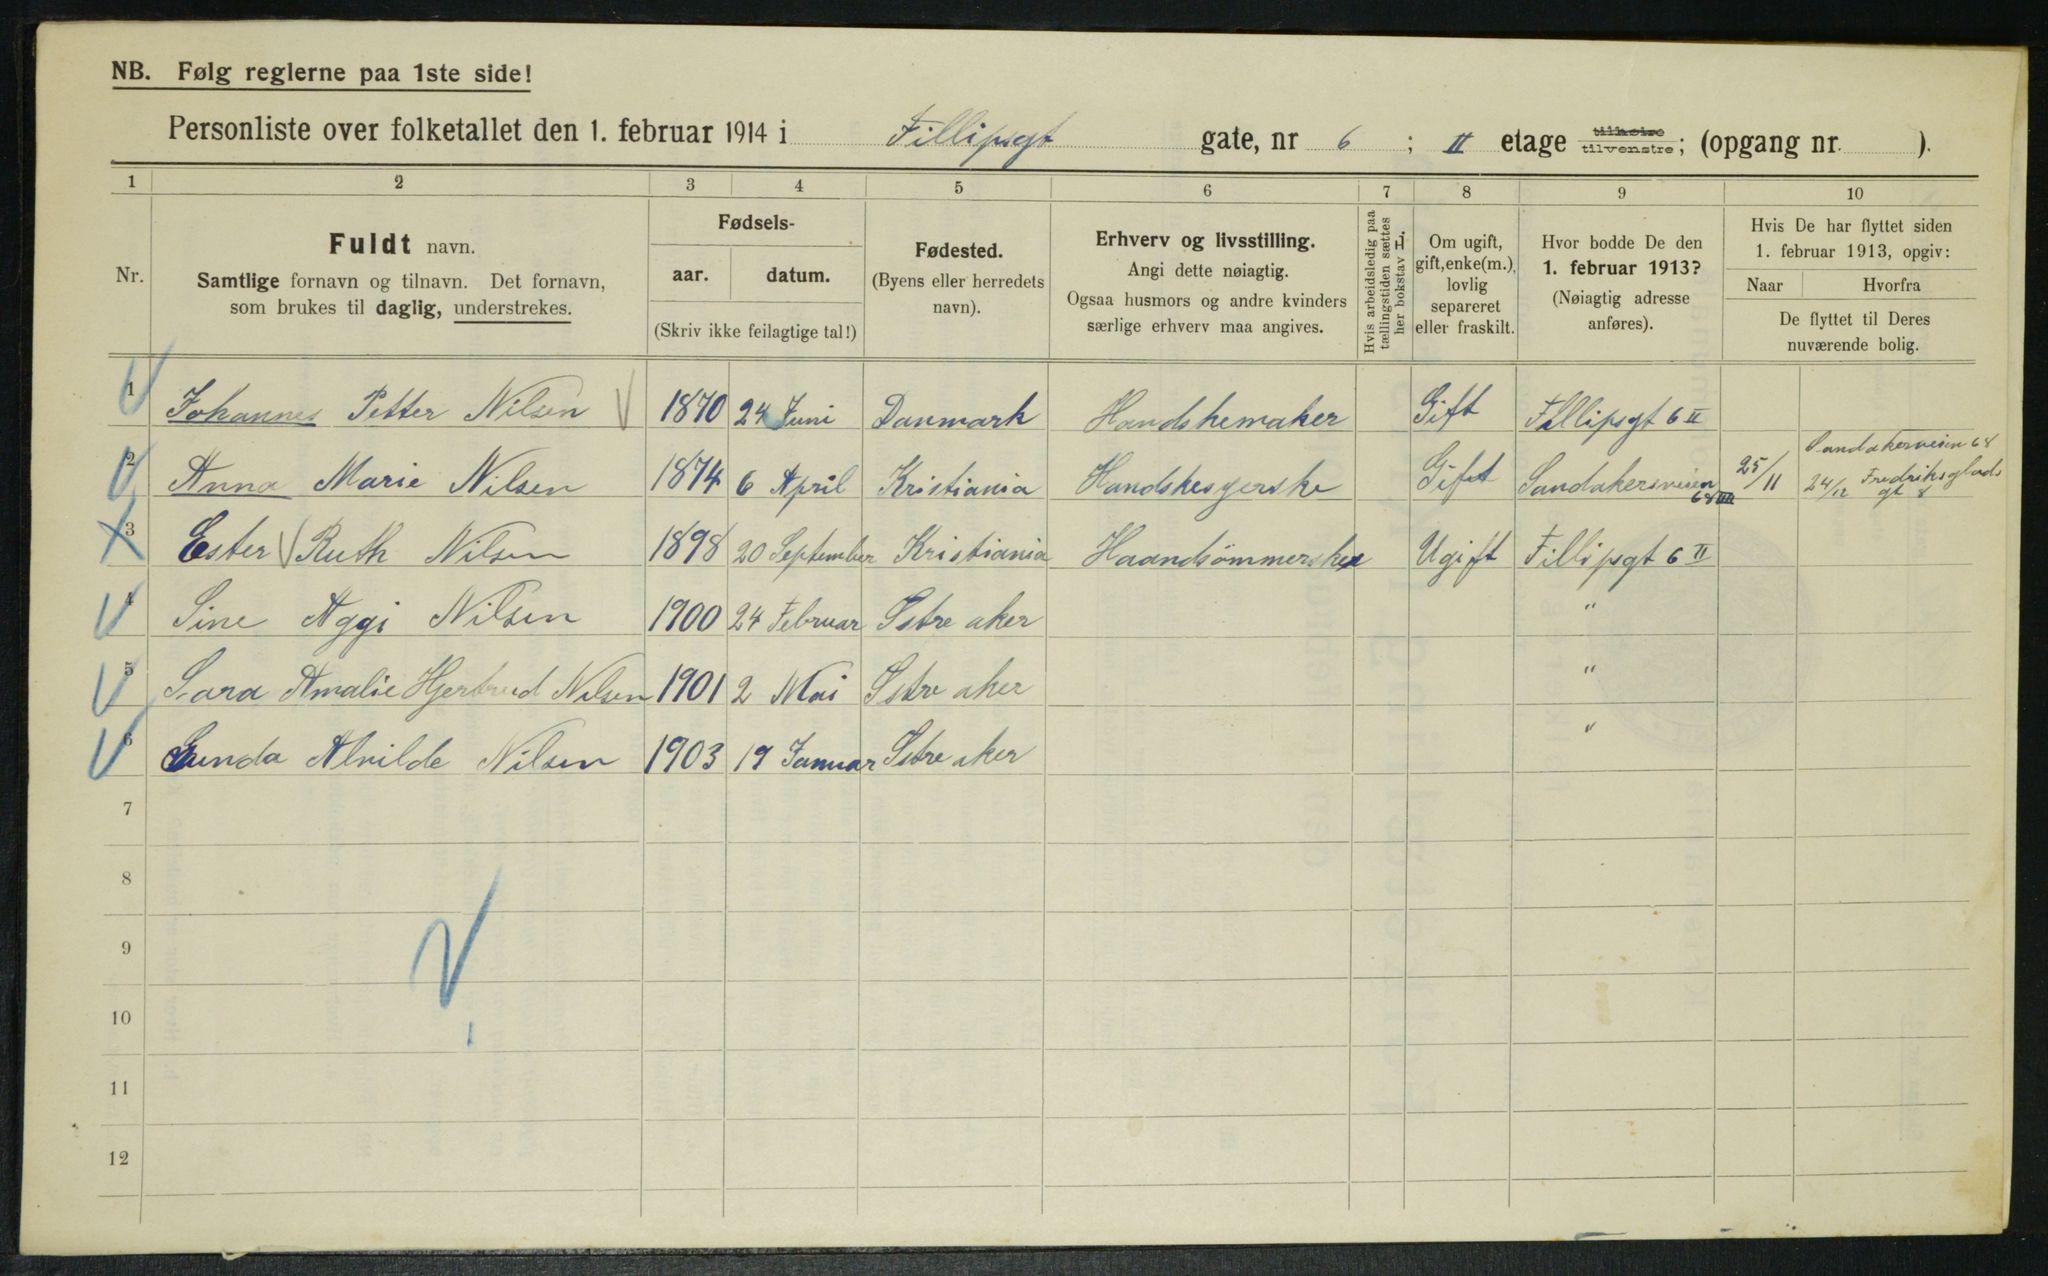 NB. Følg reglerne paa 1ste side!
Personliste over folketallet den 1. februar 1914 i Fillipsgt gate, nr 6 ; II etage tilhøire tilvenstre ; (opgang nr. ).
1 2 3 4 5 6 7 8 9 10
Nr.
Fuldt navn.
Samtlige fornavn og tilnavn. Det fornavn,
som brukes til daglig, understrekes.
Fødsels-
aar. datum.
(Skriv ikke feilagtige tal!)
Fødested.
(Byens eller herredets
navn).
Erhverv og livsstilling.
Angi dette nøiagtig.
Ogsaa husmors og andre kvinders
særlige erhverv maa angives.
Hvis arbeidsledig paa
tællingstiden sættes
her bokstav H.
Om ugift,
gift, enke(m.),
lovlig
separeret
eller fraskilt.
Hvor bodde De den
1. februar 1913?
(Nøiagtig adresse
anføres).
Hvis De har flyttet siden
1. februar 1913, opgiv:
Naar Hvorfra
De flyttet til Deres
nuværende bolig.
1 Johannes Petter Nilsen 1870 24 Juni Danmark Handskemaker Gift Fillipsgt 6 II
2 Anna Marie Nilsen 1874 6 April Kristiania Handskesyerske Gift Sandakerveien 68 III 25/11 Sandakerveien 68
24/12 Fredriksglads gt 8
3 Ester Ruth Nilsen 1898 20 September Kristiania Haandsömmerske Ugift Fillipsgt 6 II
4 Sine Aggi Nilsen 1900 24 Februar Østre aker "
5 Sara Amalie Hjertrud Nilsen 1901 2 Mai Østre aker "
6 Gunda Alvilde Nilsen 1903 19 Januar Østre aker "
7
8
9
10
11
12